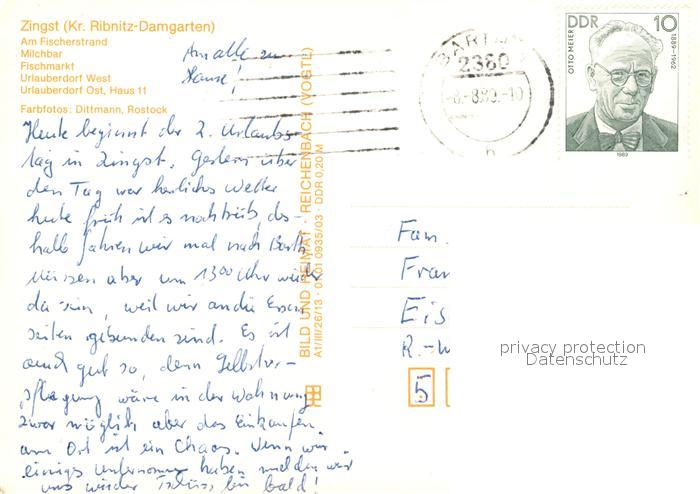 Zingst (Kr. Ribnitz-Damgarten)
Am Fischerstrand
Milchbar
Fischmarkt
Urlauberdorf West
Urlauberdorf Ost, Haus 11
Farbfotos: Dittmann, Rostock
An alle zu
Hause!
Heute beginnt der 2. Urlaubs-
tag in Zingst. Gestern über
den Tag war herrliches Wetter
heute früh ist es noch trüb, des-
halb fahren wir mal nach Barth
müssen aber um 13 00 Uhr wieder
da sein, weil wir an die Essen-
zeiten gebunden sind. Es ist
auch gut so, denn Selbstver-
pflegung wäre in der Wohnung
zwar möglich aber das Einkaufen
am Ort ist ein Chaos. Wenn wir
einiges unternommen haben melden wir
uns wieder Tschüss bis bald!
BILD UND HEIMAT · REICHENBACH (VOGTL)
A1/III/26/13 · 01 01 0935/03 · DDR 0,20 M
2380
-8.-8.89.-10
h
DDR 10
OTTO MEIER 1889-1962
1989
Fam.
Fran
Eis
R.-W
5
privacy protection
Datenschutz